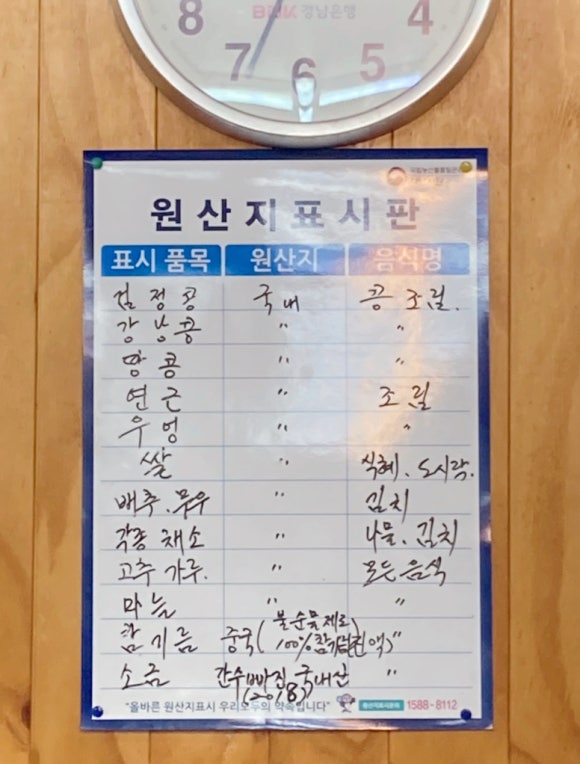 8 BNK 경남은행 4
7 6 5
원산지표시판
표시 품목 원산지 음식명
검정콩 국내 콩 조림.
강낭콩 〃 〃
땅콩 〃 〃
연근 〃 조림
우엉 〃 〃
쌀 〃 식혜. 도시락.
배추.무우 〃 김치
각종 채소 〃 나물. 김치
고추가루. 〃 모든 음식
마늘 〃 〃
불순물제로
참기름 중국(100% 참깨진액) 〃
소금 간수빠진 국내산 〃
(2018)
"올바른 원산지표시 우리모두의 약속입니다" 1588-8112